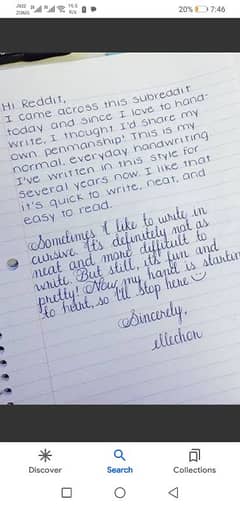 20% 7:46
Hi Reddit,
I came across this subreddit
today and since I love to hand-
write, I thought I'd share my
own penmanship! This is my
normal, everyday handwriting.
I've written in this style for
several years now. I like that
it's quick to write, neat, and
easy to read.
Sometimes I like to write in
cursive. It's definitely not as
neat and more difficult to
write. But still, it's fun and
pretty! Now my hand is startin
to hurt, so I'll stop here
Sincerely,
ellechon
Discover Search Collections